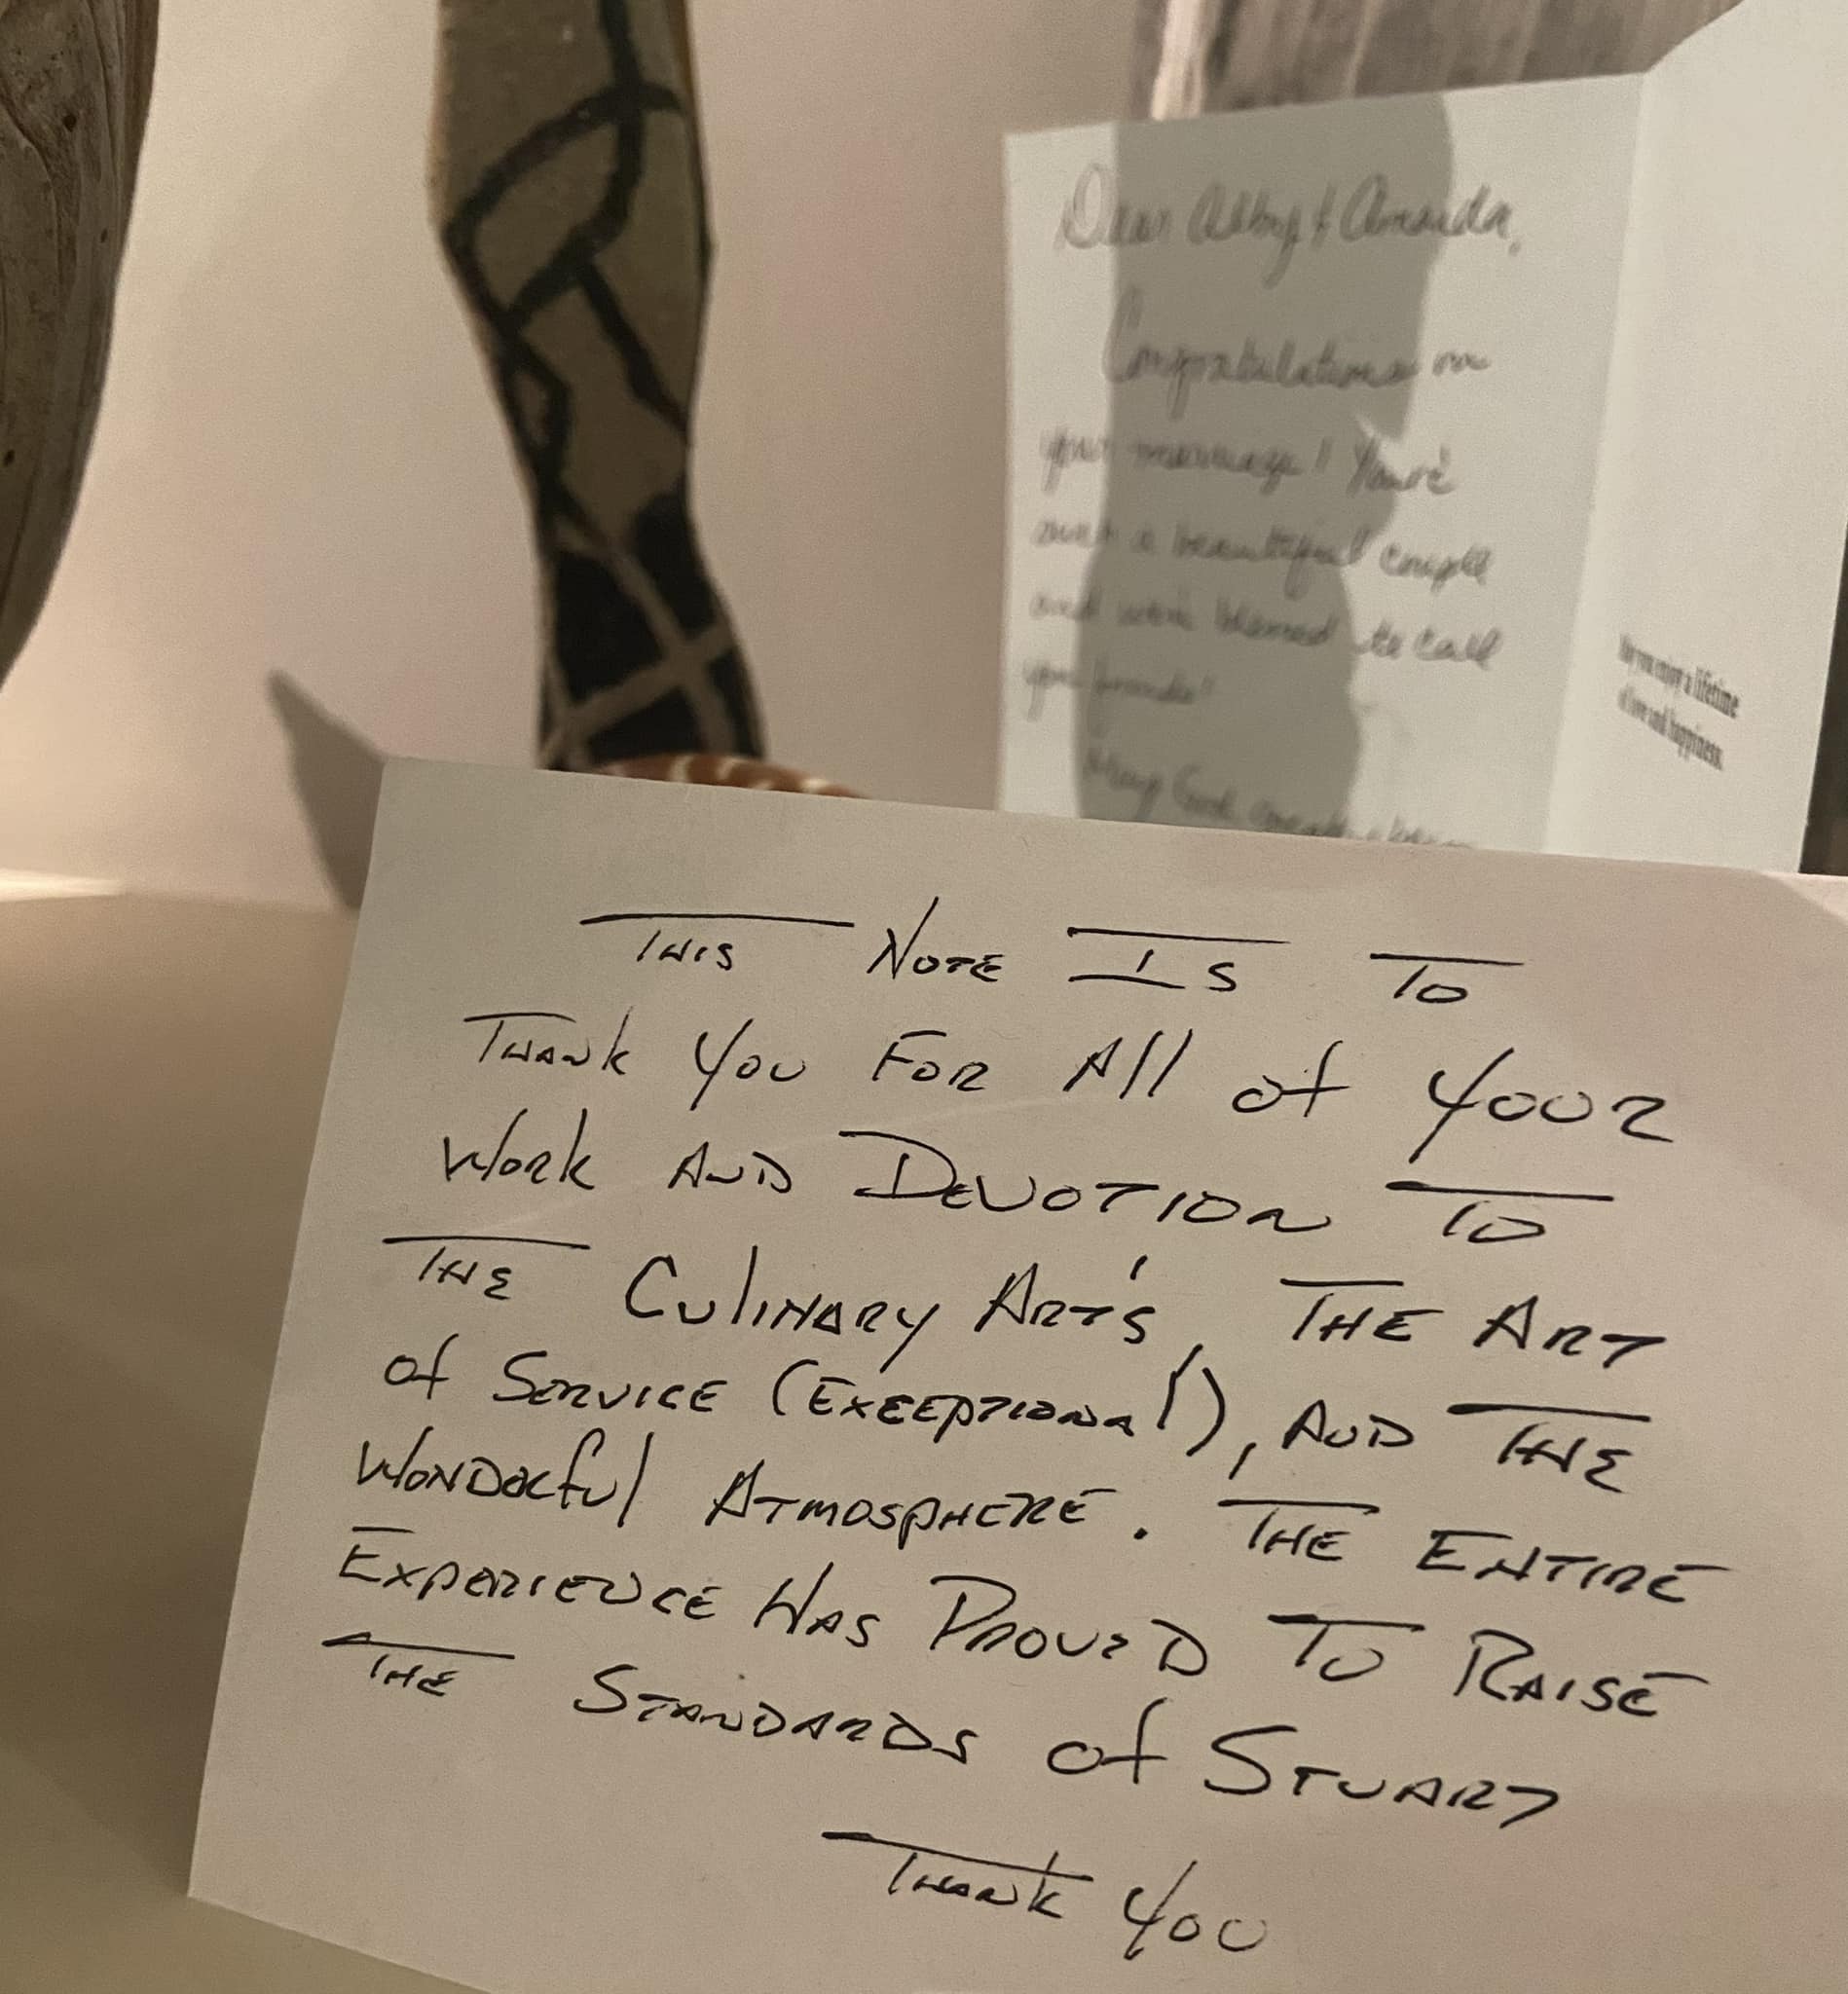 Dear Alby & Amanda,
Congratulations on
your marriage! You're
such a beautiful couple
and we're blessed to call
you friends!
May God
May you enjoy a lifetime
of love and happiness.
THIS NOTE IS TO
THANK YOU FOR All of YOUR
WORK AND DEVOTION TO
THE CULINARY ART'S, THE ART
of SERVICE (EXCEPTIONAl!), AND THE
WONDERful ATMOSPHERE. THE ENTIRE
EXPERIENCE HAS PROVED TO RAISE
THE STANDARDS of STUART
THANK YOU